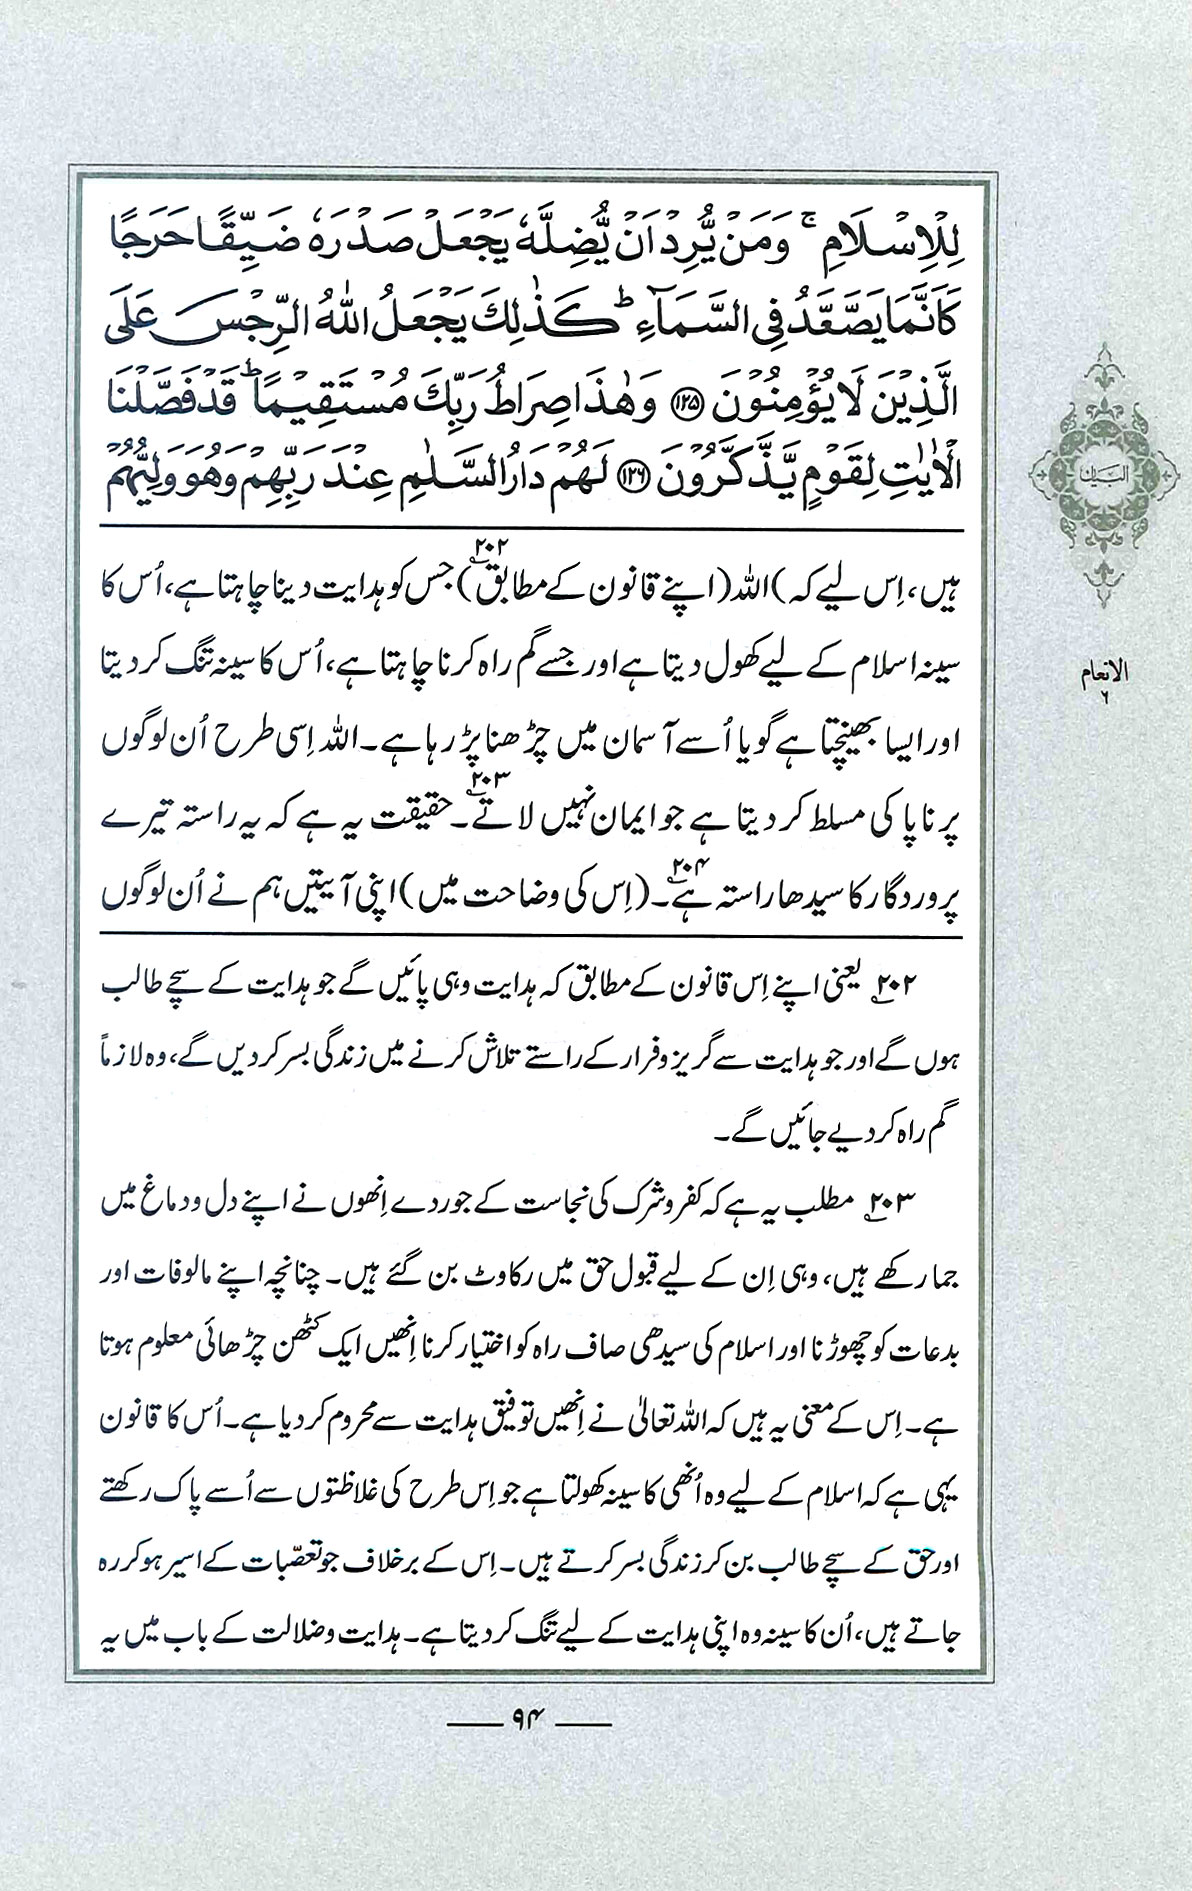 لِلْاِسْلَامِ ۚ وَمَنْ يُّرِدْ اَنْ يُّضِلَّهٗ يَجْعَلْ صَدْرَهٗ ضَيِّقًا حَرَجًا
كَاَنَّمَا يَصَّعَّدُ فِى السَّمَآءِ ؕ كَذٰلِكَ يَجْعَلُ اللّٰهُ الرِّجْسَ عَلَى
الَّذِيْنَ لَا يُؤْمِنُوْنَ ﴿۱۲۵﴾ وَهٰذَا صِرَاطُ رَبِّكَ مُسْتَقِيْمًا ؕ قَدْ فَصَّلْنَا
الْاٰيٰتِ لِقَوْمٍ يَّذَّكَّرُوْنَ ﴿۱۲۶﴾ لَهُمْ دَارُ السَّلٰمِ عِنْدَ رَبِّهِمْ وَهُوَ وَلِيُّهُمْ
ہیں، اِس لیے کہ) اللہ (اپنے قانون کے مطابق۲۰۲) جس کو ہدایت دینا چاہتا ہے، اُس کا
سینہ اسلام کے لیے کھول دیتا ہے اور جسے گم راہ کرنا چاہتا ہے، اُس کا سینہ تنگ کر دیتا
اور ایسا بھینچتا ہے گویا اُسے آسمان میں چڑھنا پڑ رہا ہے۔ اللہ اِسی طرح اُن لوگوں
پر ناپاکی مسلط کر دیتا ہے جو ایمان نہیں لاتے۲۰۳۔ حقیقت یہ ہے کہ یہ راستہ تیرے
پروردگار کا سیدھا راستہ ہے۲۰۴۔ (اِس کی وضاحت میں) اپنی آیتیں ہم نے اُن لوگوں
۲۰۲؂ یعنی اپنے اِس قانون کے مطابق کہ ہدایت وہی پائیں گے جو ہدایت کے سچے طالب
ہوں گے اور جو ہدایت سے گریز و فرار کے راستے تلاش کرنے میں زندگی بسر کر دیں گے، وہ لازماً
گم راہ کر دیے جائیں گے۔
۲۰۳؂ مطلب یہ ہے کہ کفر و شرک کی نجاست کے جو ردے اِنھوں نے اپنے دل و دماغ میں
جما رکھے ہیں، وہی اِن کے لیے قبول حق میں رکاوٹ بن گئے ہیں۔ چنانچہ اپنے مالوفات اور
بدعات کو چھوڑنا اور اسلام کی سیدھی صاف راہ کو اختیار کرنا اِنھیں ایک کٹھن چڑھائی معلوم ہوتا
ہے۔ اِس کے معنی یہ ہیں کہ اللہ تعالیٰ نے اِنھیں توفیق ہدایت سے محروم کر دیا ہے۔ اُس کا قانون
یہی ہے کہ اسلام کے لیے وہ اُنھی کا سینہ کھولتا ہے جو اِس طرح کی غلاظتوں سے اُسے پاک رکھتے
اور حق کے سچے طالب بن کر زندگی بسر کرتے ہیں۔ اِس کے برخلاف جو تعصّبات کے اسیر ہو کر رہ
جاتے ہیں، اُن کا سینہ وہ اپنی ہدایت کے لیے تنگ کر دیتا ہے۔ ہدایت و ضلالت کے باب میں یہ
البیان
الانعام
۶
۹۴